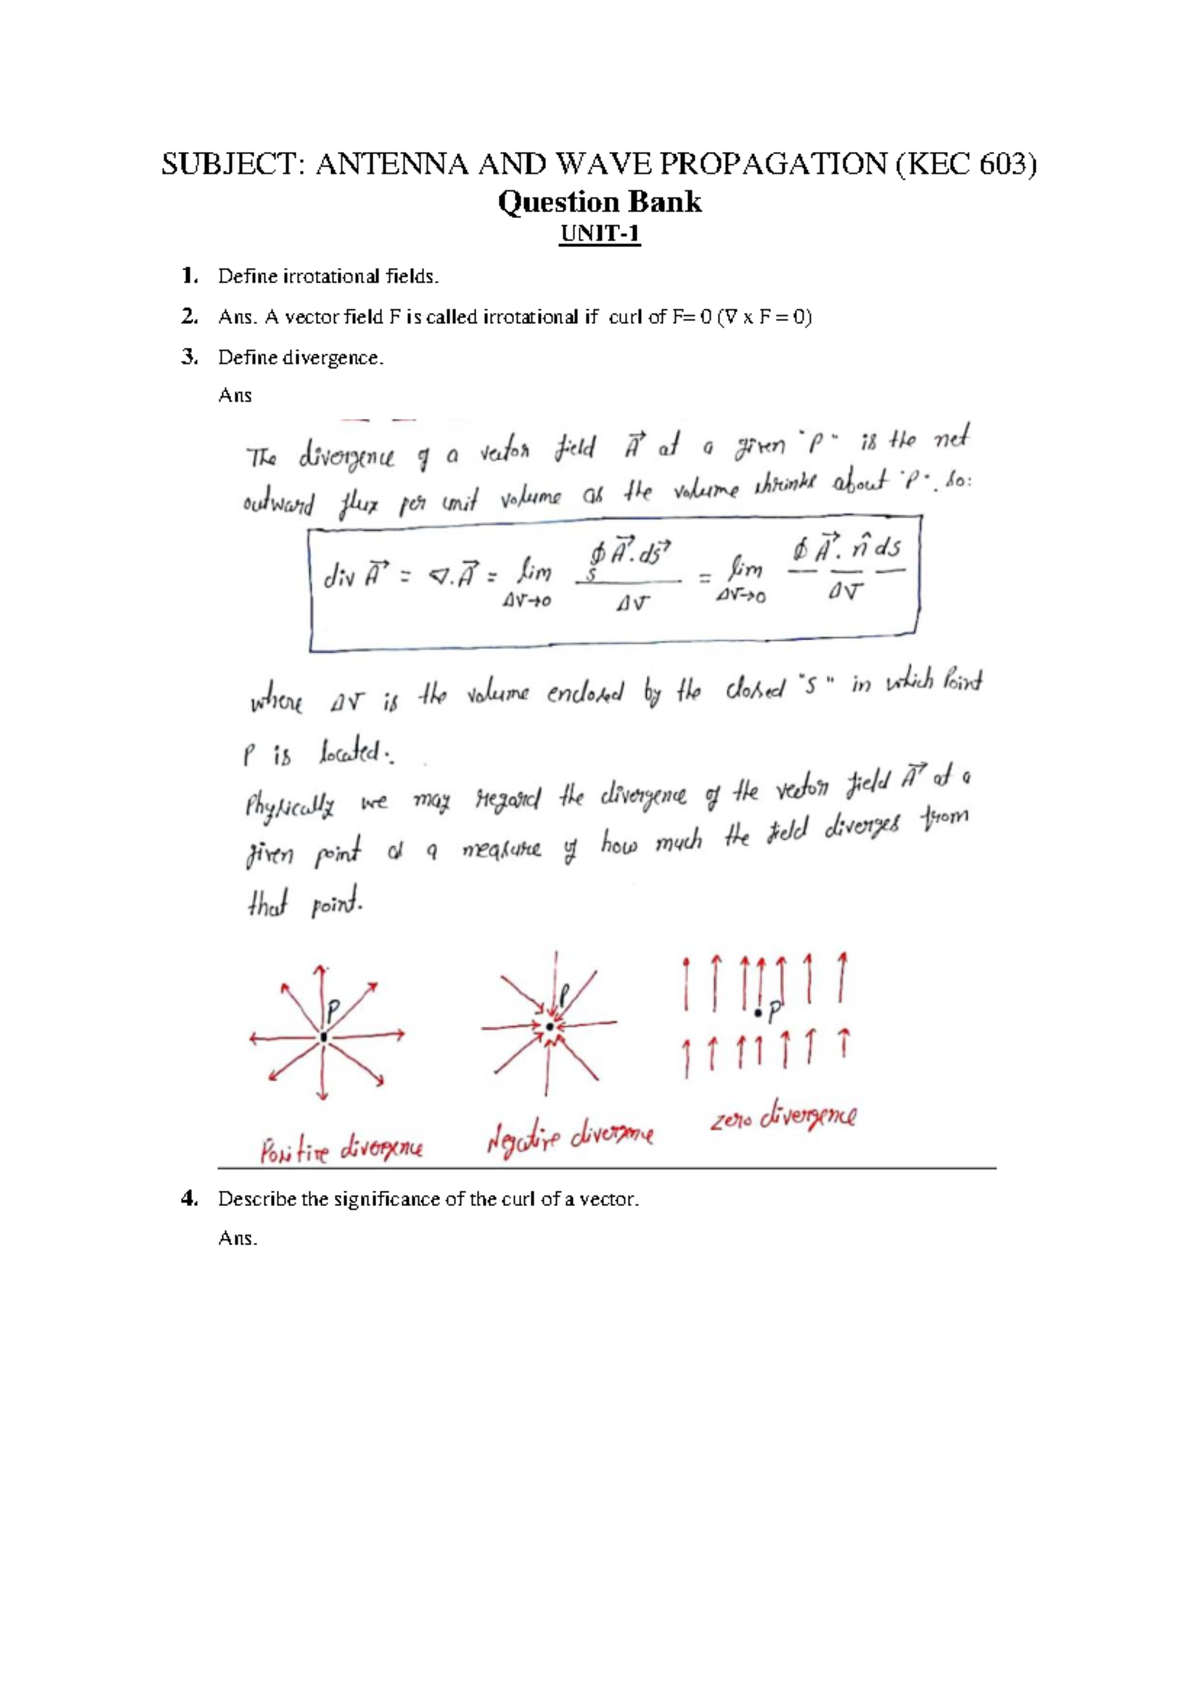 SUBJECT: ANTENNA AND WAVE PROPAGATION (KEC 603)
Question Bank
UNIT-1
1. Define irrotational fields.
2. Ans. A vector field F is called irrotational if curl of F= 0 (∇ x F = 0)
3. Define divergence.
Ans
The divergence of a vector field A⃗ at a given "P" is the net
outward flux per unit volume as the volume shrinks about "P". So:
div A⃗ = ∇.A⃗ = lim ΔV→0 ∮s A⃗.ds⃗ / ΔV = lim ΔV→0 ∮ A⃗. n̂ ds / ΔV
where ΔV is the volume enclosed by the closed "S" in which Point
P is located.
Physically we may regard the divergence of the vector field A⃗ at a
given point as a measure of how much the field diverges from
that point.
P
P
P
Positive divergence
Negative divergence
zero divergence
4. Describe the significance of the curl of a vector.
Ans.